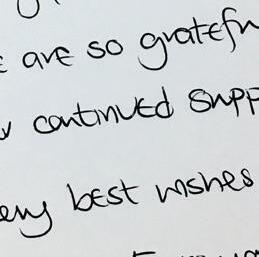 are so gratef
continued supp
very best wishes